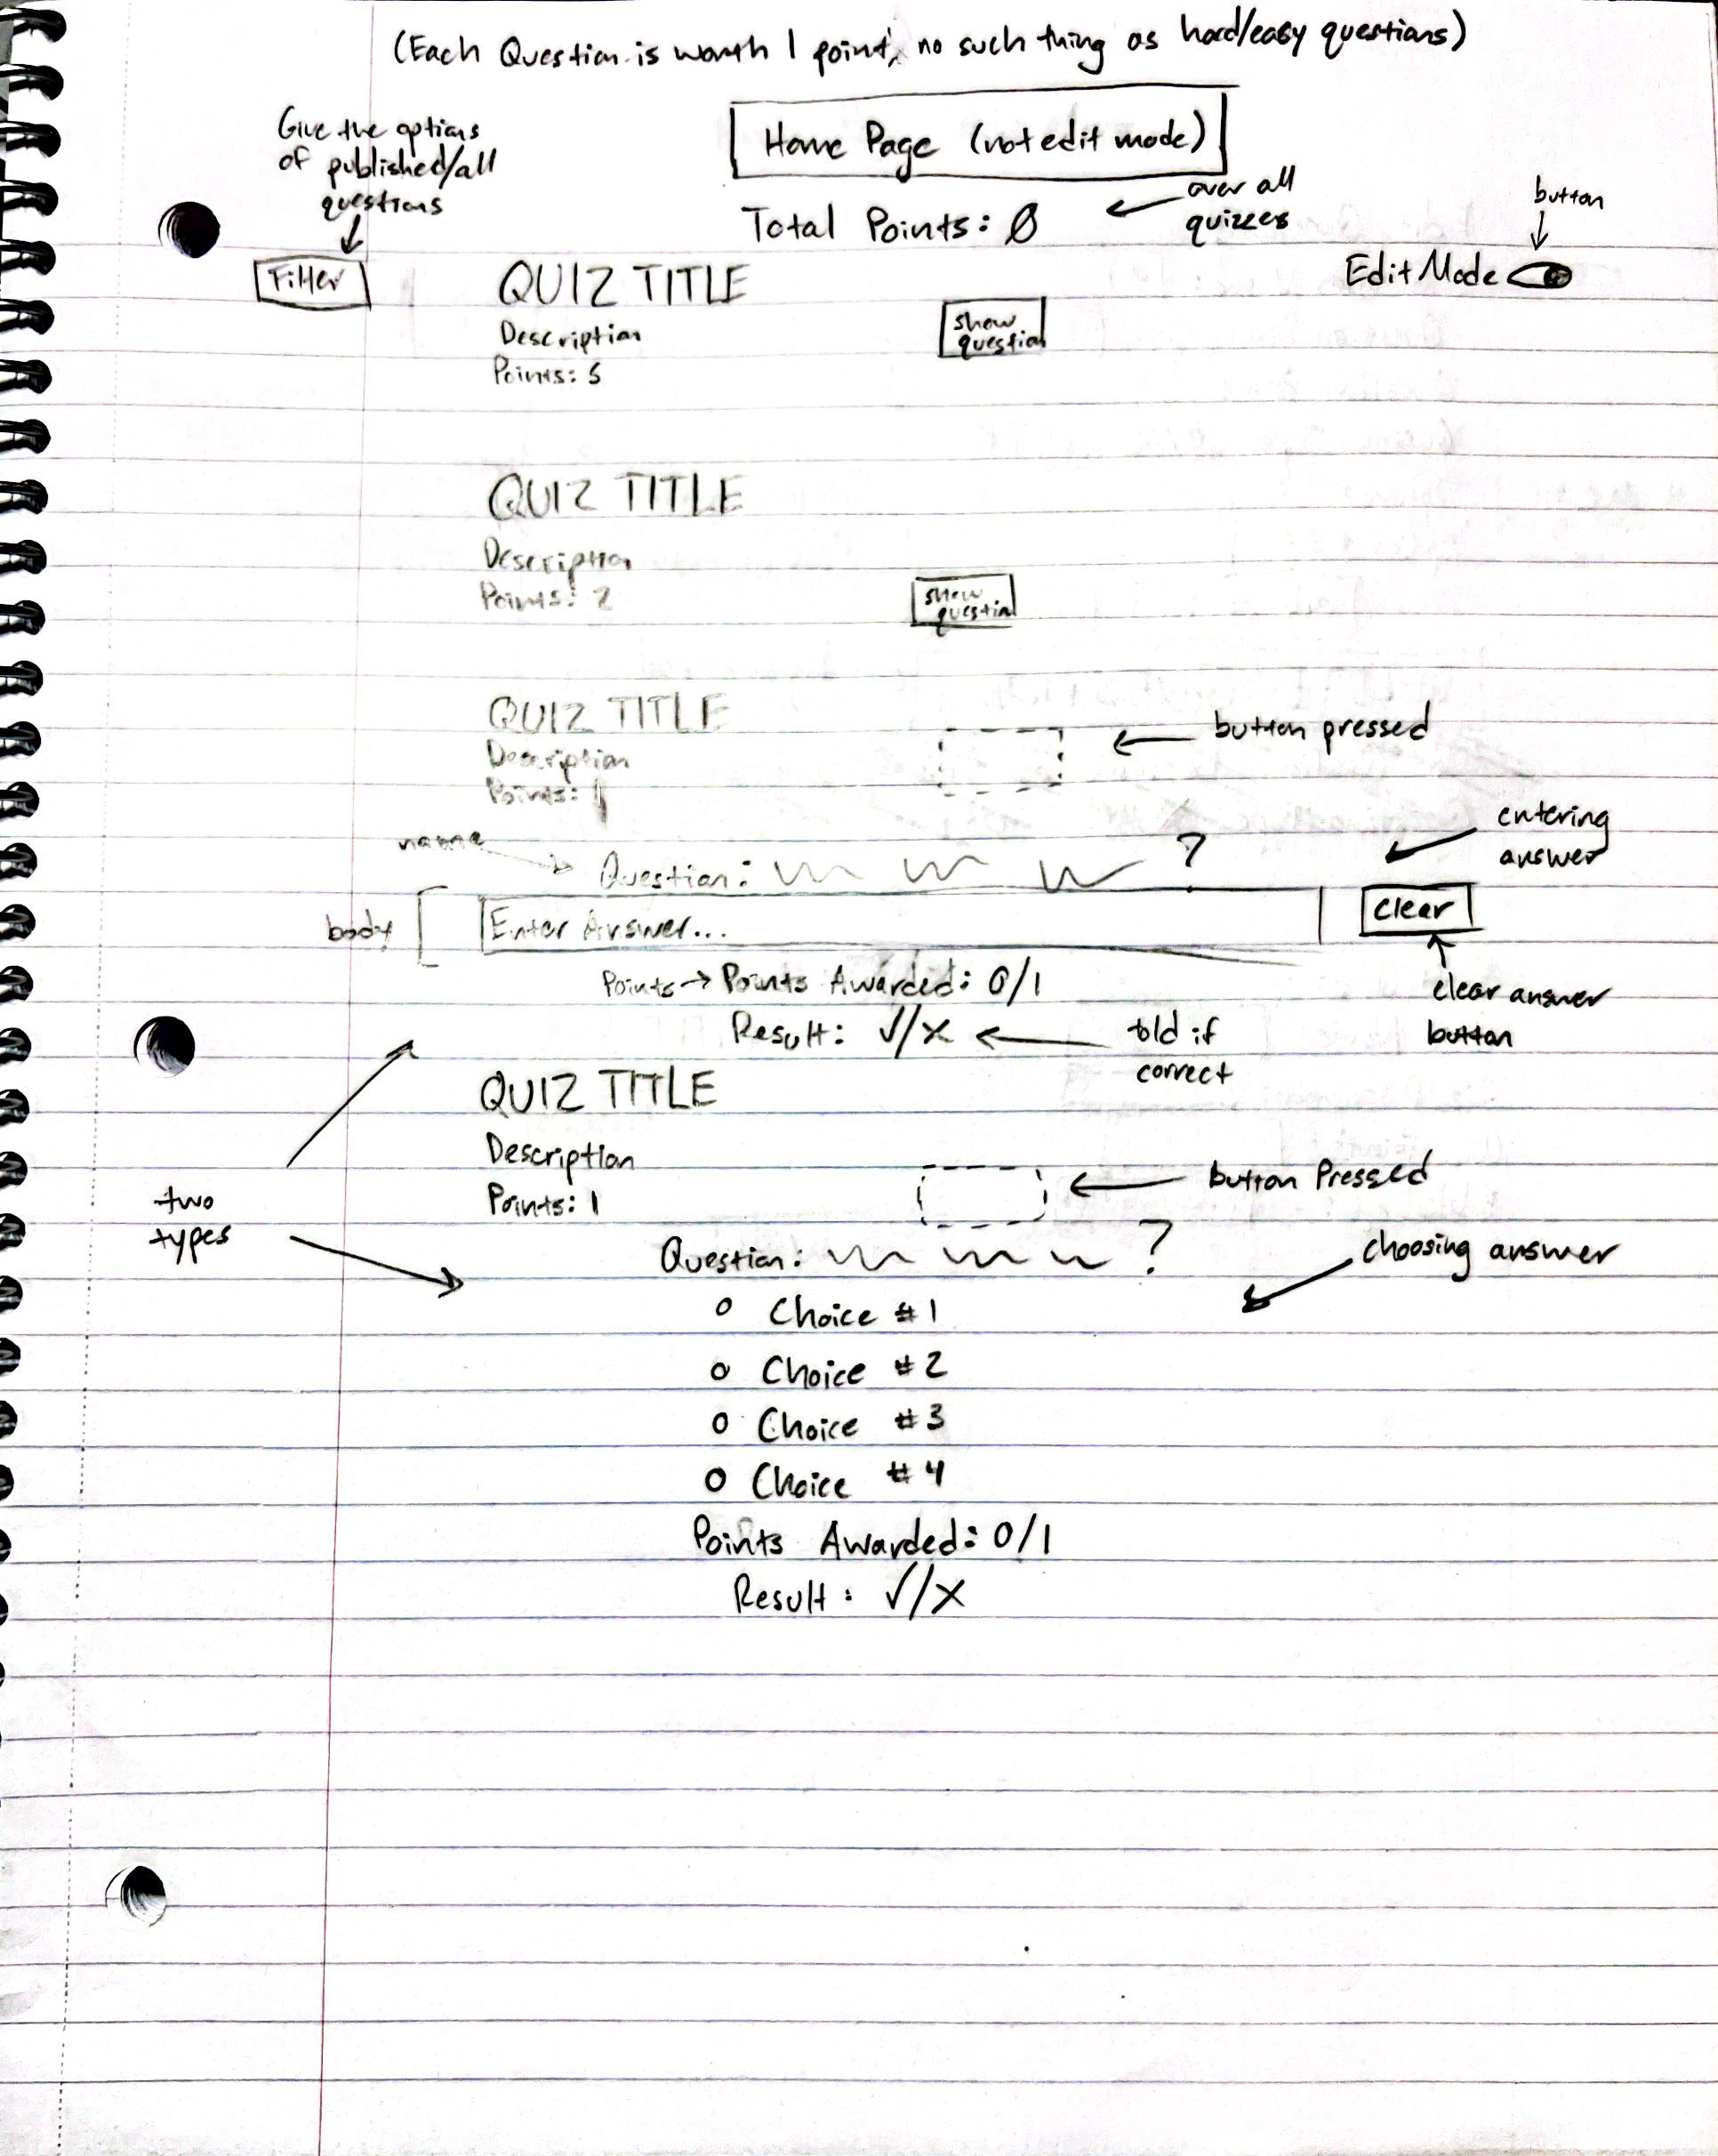 (Each Question is worth 1 point, no such thing as hard/easy questions)
Give the options
of published/all
questions
Home Page (not edit mode)
over all
quizzes
Total Points: 0
button
Filter
Edit Mode
QUIZ TITLE
Description
Points: 5
show
question
QUIZ TITLE
Description
Points: 2
show
question
QUIZ TITLE
Description
Points: 1
button pressed
name
Question: ?
entering
answer
body
Enter Answer...
Clear
clear answer
button
Points → Points Awarded: 0/1
Result: ✓/X
told if
correct
QUIZ TITLE
Description
Points: 1
button Pressed
two
types
Question: ?
choosing answer
○ Choice #1
○ Choice #2
○ Choice #3
○ Choice #4
Points Awarded: 0/1
Result: ✓/X